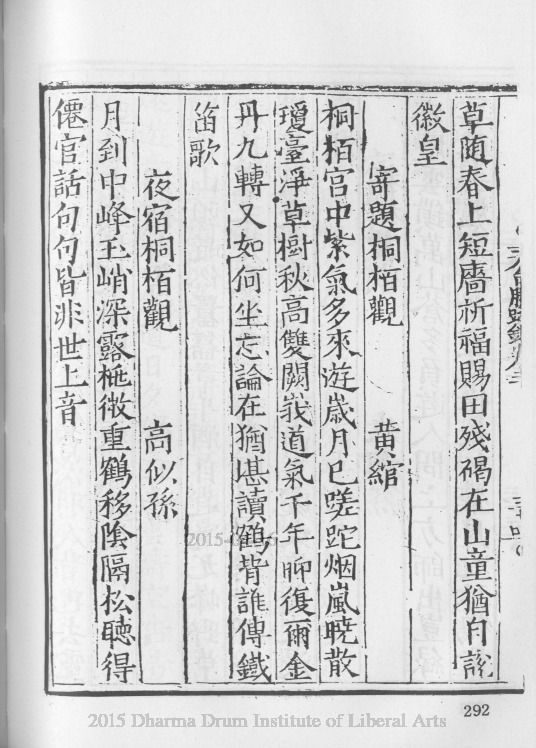 草随春上短墻祈福賜田残碣在山童猶自説
徽皇
寄題桐栢觀 黄綰
桐栢宫中紫氣多來遊歲月已蹉跎烟嵐曉散
瓊臺淨草樹秋高雙闕峩道氣千年聊復爾金
丹九轉又如何坐忘論在猶堪讀鶴背誰傳鐵
笛歌
夜宿桐栢觀 高似孫
月到中峰玉峭深露栀微重鶴移陰隔松聽得
僊官話句句皆非世上音
292
2015 Dharma Drum Institute of Liberal Arts